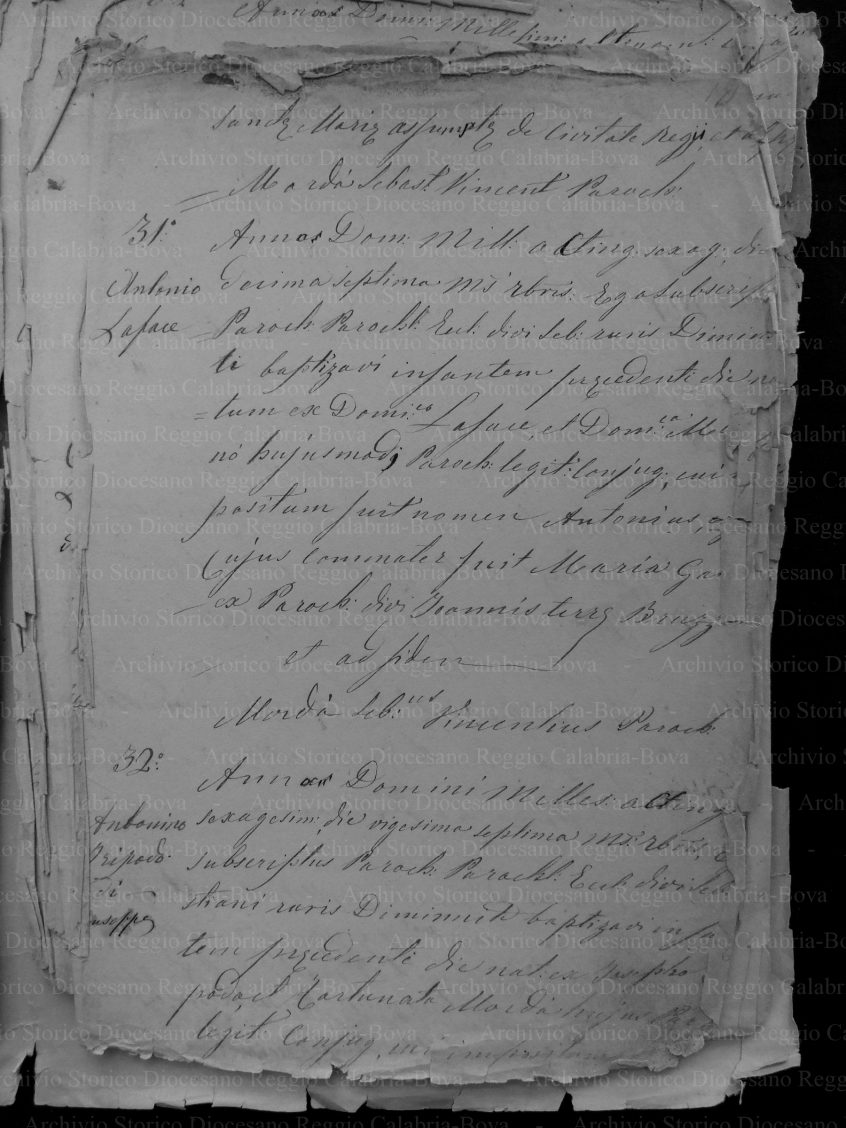 Annos Domini Millesim:
Sanctę Marię assumptę de Civitate Regii, et
Mordà Sebast: Vincent Paroch:
31°
Annos Dom: Mill: octing: sexag: die
Antonio
decima septima Ms' xbris: Ego subscrip
Laface
Paroch: Parochl: Eccl: divi Seb: ruris Dimin
ti baptizavi infantem pręcedenti die na
=tum ex Domi:co Laface, et Dom:ca
nò hujusmodi Paroch: legit: Conjug:, cui
positum fuit nomen Antonius,
Cujus Commater fuit Maria
ex Paroch: divi Joannis terrę
et ad fidem
Mordà Seb:nus Vincentius Paroch:
32°
Annos Domini Milles: octing
Antonino
sexagesim: die vigesima septima Ms: xbris,
Tripodo
subscriptus Paroch: Parochl: Eccl: divi Seb
di
stiani ruris Diminniti baptizavi infa
useppe
tem pręcedenti die nat: ex Josepho
podo, et Fortunata Mordà hujus
legit: Conjug, cui impositum